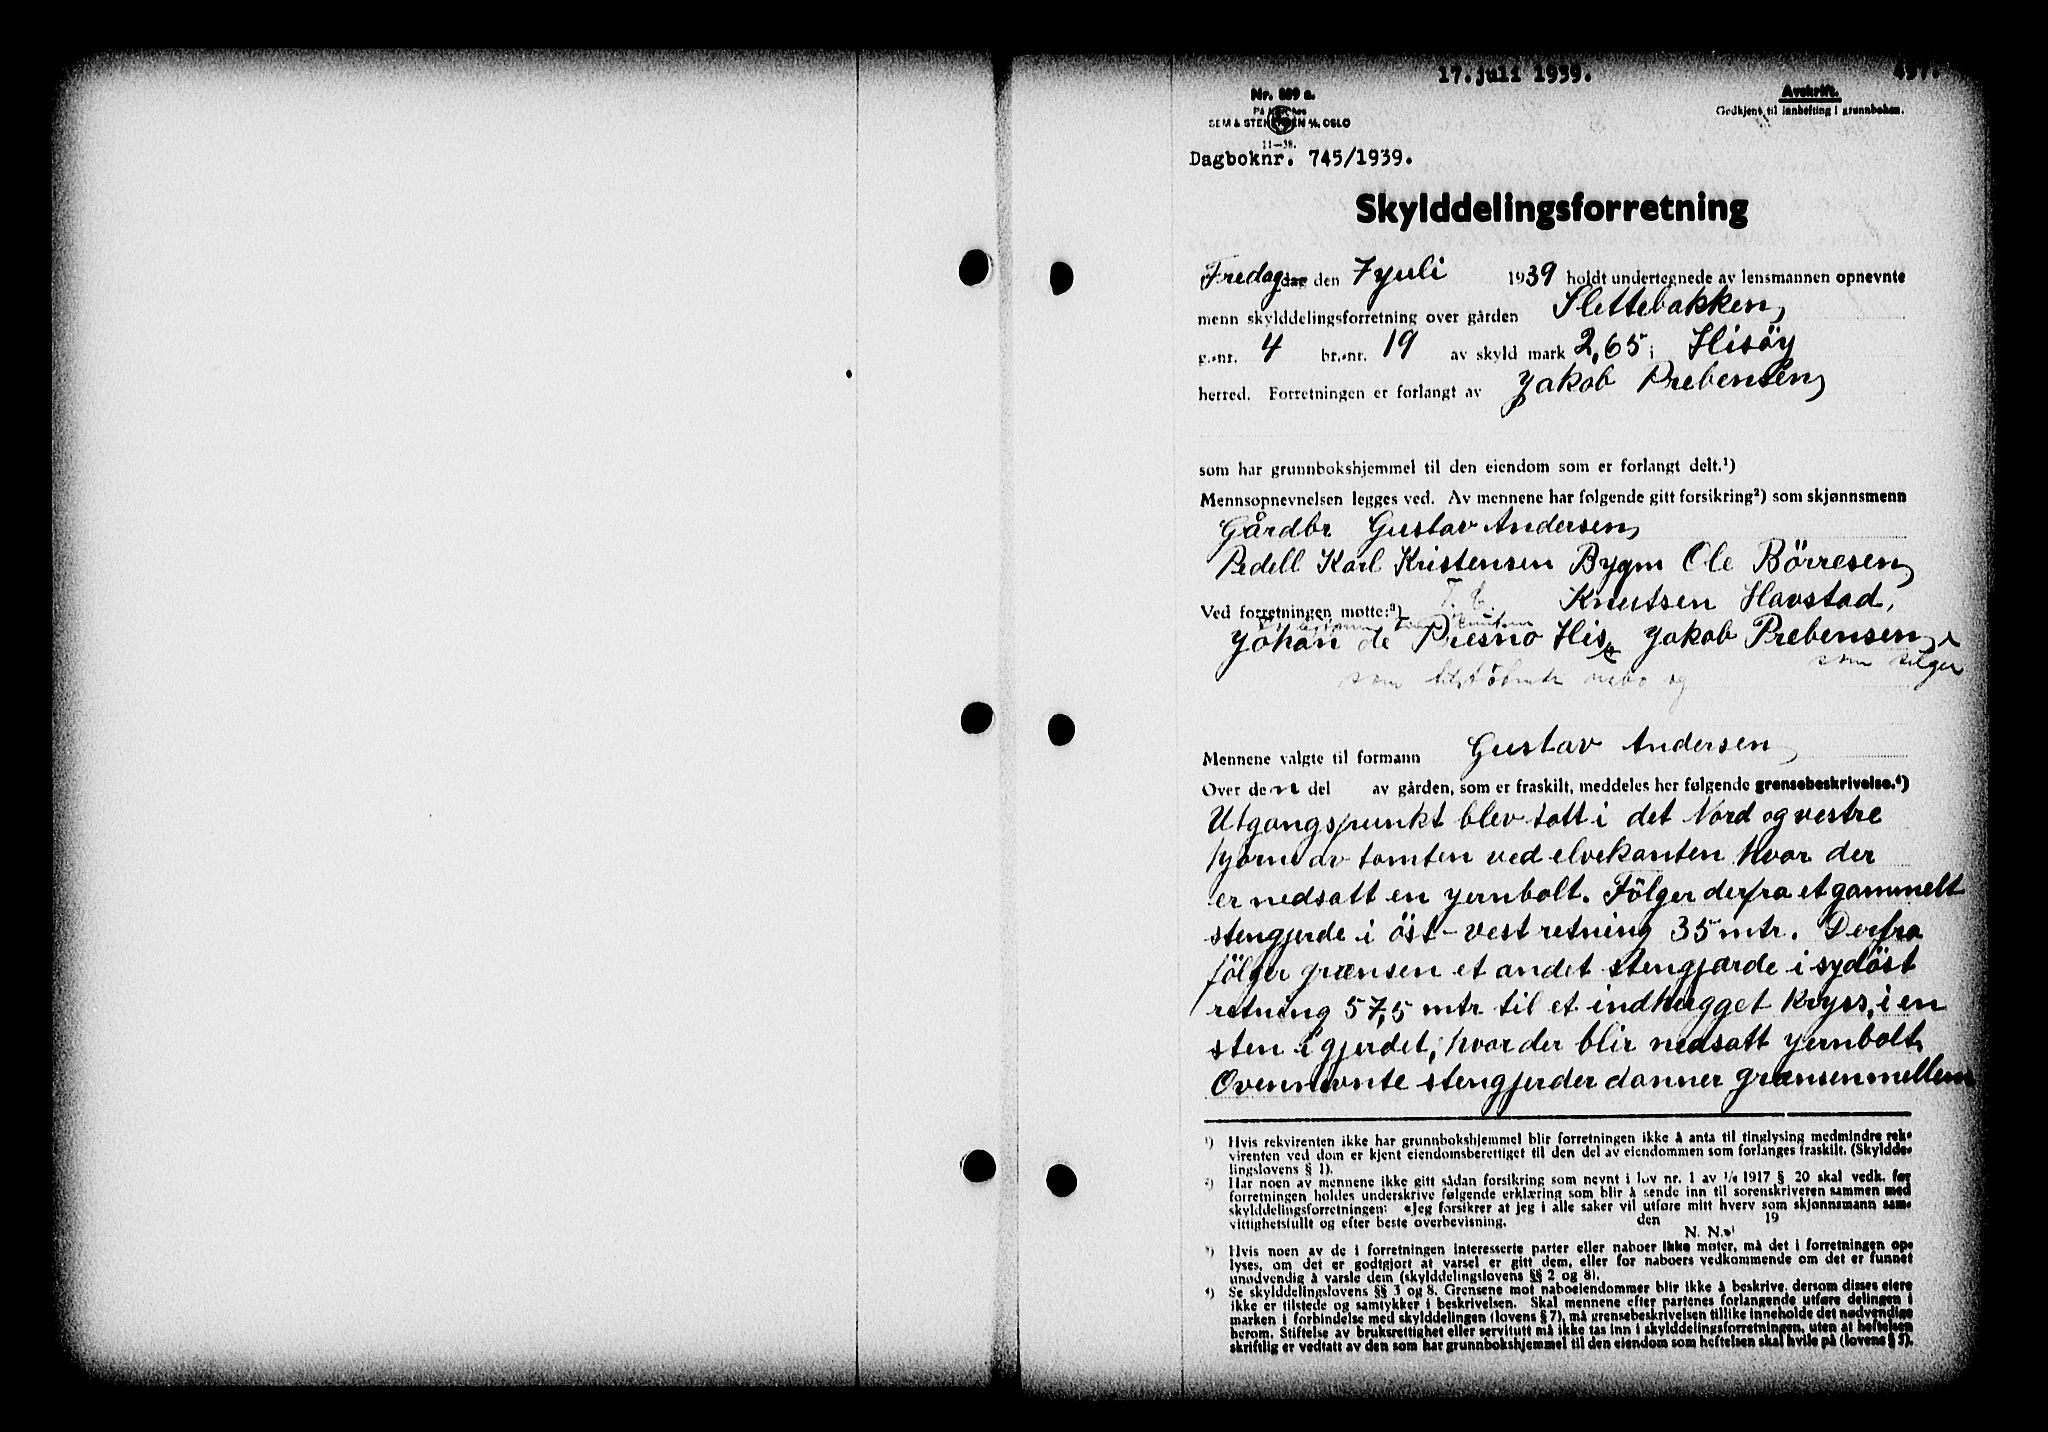 17. juli 1939.
Nr. 899 a.
SEM & STENERSEN A/S, OSLO
11-38.
Avskrift.
Godkjent til innhefting i grunnboken.
Dagboknr. 745/1939.
Skylddelingsforretning
Fredag dag den 7 juli 1939 holdt undertegnede av lensmannen opnevnte
menn skylddelingsforretning over gården Slettebakken,
g.-nr. 4 br.-nr. 19 av skyld mark 2,65 i Hisöy
herred. Forretningen er forlangt av Jakob Prebensen,
som har grunnbokshjemmel til den eiendom som er forlangt delt.¹)
Mennsopnevnelsen legges ved. Av mennene har følgende gitt forsikring²) som skjønnsmenn
Gårdbr Gustav Andersen,
Pedell Karl Kristensen Bygm Ole Börresen,
Ved forretningen møtte:³) T. C. Knutsen Havstad,
Johan de Presno His, Jakob Prebensen,
som selger
som tilstötende nabo og
Mennene valgte til formann Gustav Andersen,
Over den del av gården, som er fraskilt, meddeles her følgende grensebeskrivelse.⁴)
Utgangspunkt blev tatt i det Nord og vestre
hjörne av tomten ved elvekanten hvor der
er nedsatt en jernbolt. Fölger derfra et gammelt
stengjerde i öst-vest retning 35 mtr. Derfra
fölger grænsen et andet stengjærde i sydöst
retning 57,5 mtr til et indhugget kryss, i en
sten i gjerdet, hvor der blir nedsatt jernbolt.
Ovennevnte stengjerder danner grænsen mellem
¹) Hvis rekvirenten ikke har grunnbokshjemmel blir forretningen ikke å anta til tinglysing medmindre rek-
virenten ved dom er kjent eiendomsberettiget til den del av eiendommen som forlanges fraskilt. (Skyldde-
lingslovens § 1).
²) Har noen av mennene ikke gitt sådan forsikring som nevnt i lov nr. 1 av 1/6 1917 § 20 skal vedk. før
forretningen holdes underskrive følgende erklæring som blir å sende inn til sorenskriveren sammen med
skylddelingsforretningen: «Jeg forsikrer at jeg i alle saker vil utføre mitt hverv som skjønnsmann sam-
vittighetsfullt og efter beste overbevisning. den 19
N. N.»
³) Hvis noen av de i forretningen interesserte parter eller naboer ikke møter, må det i forretningen op-
lyses, om det er godtgjort at varsel er gitt dem, eller for naboers vedkommende om det er funnet
unødvendig å varsle dem (skylddelingslovens §§ 2 og 8).
⁴) Se skylddelingslovens §§ 3 og 8. Grensene mot naboeiendommer blir ikke å beskrive, dersom disses eiere
ikke er tilstede og samtykker i beskrivelsen. Skal mennene efter partenes forlangende utføre delingen i
marken i forbindelse med skylddelingen (lovens § 7), må grensebeskrivelsen tillike inneholde det nødvendige
herom. Stiftelse av bruksrettighet eller servitutt må ikke tas inn i skylddelingsforretningen, uten at heftelsen
skriftlig er vedtatt av den som har grunnbokshjemmel til den eiendom som heftelsen skal hvile på (lovens § 5).